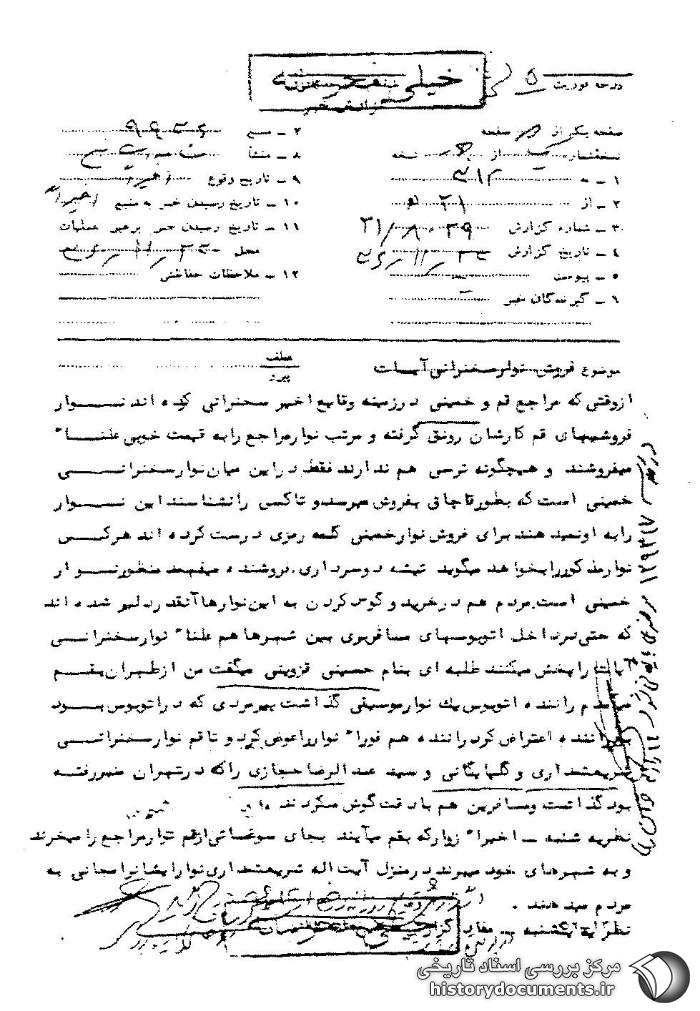 خیلی محرمانه
درجه فوریت
صفحه یکم از صفحه
نسخه شماره از نسخه
۱ ـ به ۳۱۲
۲ ـ از ۲۱ ه
۳ ـ شماره گزارش
۴ ـ تاریخ گزارش
۵ ـ پیوست
۶ ـ گیرندگان خبر
۷ ـ منبع ۹۹۳۶
۸ ـ منشأ
۹ ـ تاریخ وقوع اخیرا
۱۰ ـ تاریخ رسیدن خبر به منبع اخیرا
۱۱ ـ تاریخ رسیدن خبر برهبر عملیات
محل
۱۲ ـ ملاحظات حفاظتی
عطف
پیرو
موضوع فروش نوار سخنرانی آیات
از وقتی که مراجع قم و خمینی در زمینه وقایع اخیر سخنرانی کرده اند نوار
فروشیهای قم کارشان رونق گرفته و مرتب نوار مراجع را به قیمت خوبی علناً
میفروشند و هیچگونه ترسی هم ندارند فقط در این میان نوار سخنرانی
خمینی است که بطور قاچاق بفروش میرسد و تا کسی را نشناسند این نوار
را به او نمیدهند برای فروش نوار خمینی کلمه رمزی درست کرده اند هر کس
نوار مذکور را بخواهد میگوید تیشه دو سر داری فروشنده میفهمد منظور نوار
خمینی است مردم هم در خرید و گوش کردن به این نوارها آنقدر دلیر شده اند
که حتی در داخل اتوبوسهای مسافربری بین شهرها هم علناً نوار سخنرانی
آیات را پخش میکنند طلبه ای بنام حسینی قزوینی میگفت من از طهران بقم
میآمدم راننده اتوبوس یك نوار موسیقی گذاشت پیرمردی که در اتوبوس بود
براننده اعتراض کرد راننده هم فوراً نوار را عوض کرد و تا قم نوار سخنرانی
شریعتمداری و گلپایگانی و سید عبدالرضا حجازی را که در تهران منبر رفته
بود گذاشت و مسافرین هم با دقت گوش میکردند
نظریه شنبه ـ اخیراً زوار که بقم میآیند بجای سوغاتی از قم نوار مراجع را میخرند
و به شهرهای خود میبرند در منزل آیت اله شریعتمداری نوار ایشانرا مجانی به
مردم میدهند .
نظریه یکشنبه ـ مفاد گزارش
خیلی محرمانه
مرکز بررسی اسناد تاریخی
historydocuments.ir